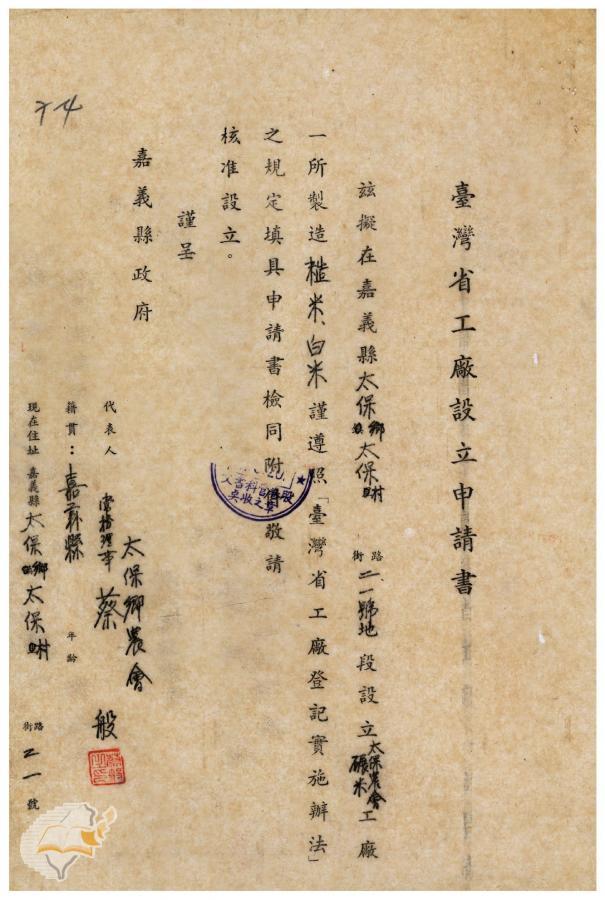 臺灣省工廠設立申請書
玆擬在嘉義縣太保鄉太保村 街路 二一號地 段設立太保農會碾米工廠
一所製造糙米、白米謹遵照「臺灣省工廠登記實施辦法」
之規定填具申請書檢同附件敬請
核准設立。
謹呈
嘉義縣政府
太保鄉農會
代表人 常務理事 蔡 般
籍貫：嘉義縣 年齡
現在住址 嘉義縣太保鄉太保村 街路 二一 號